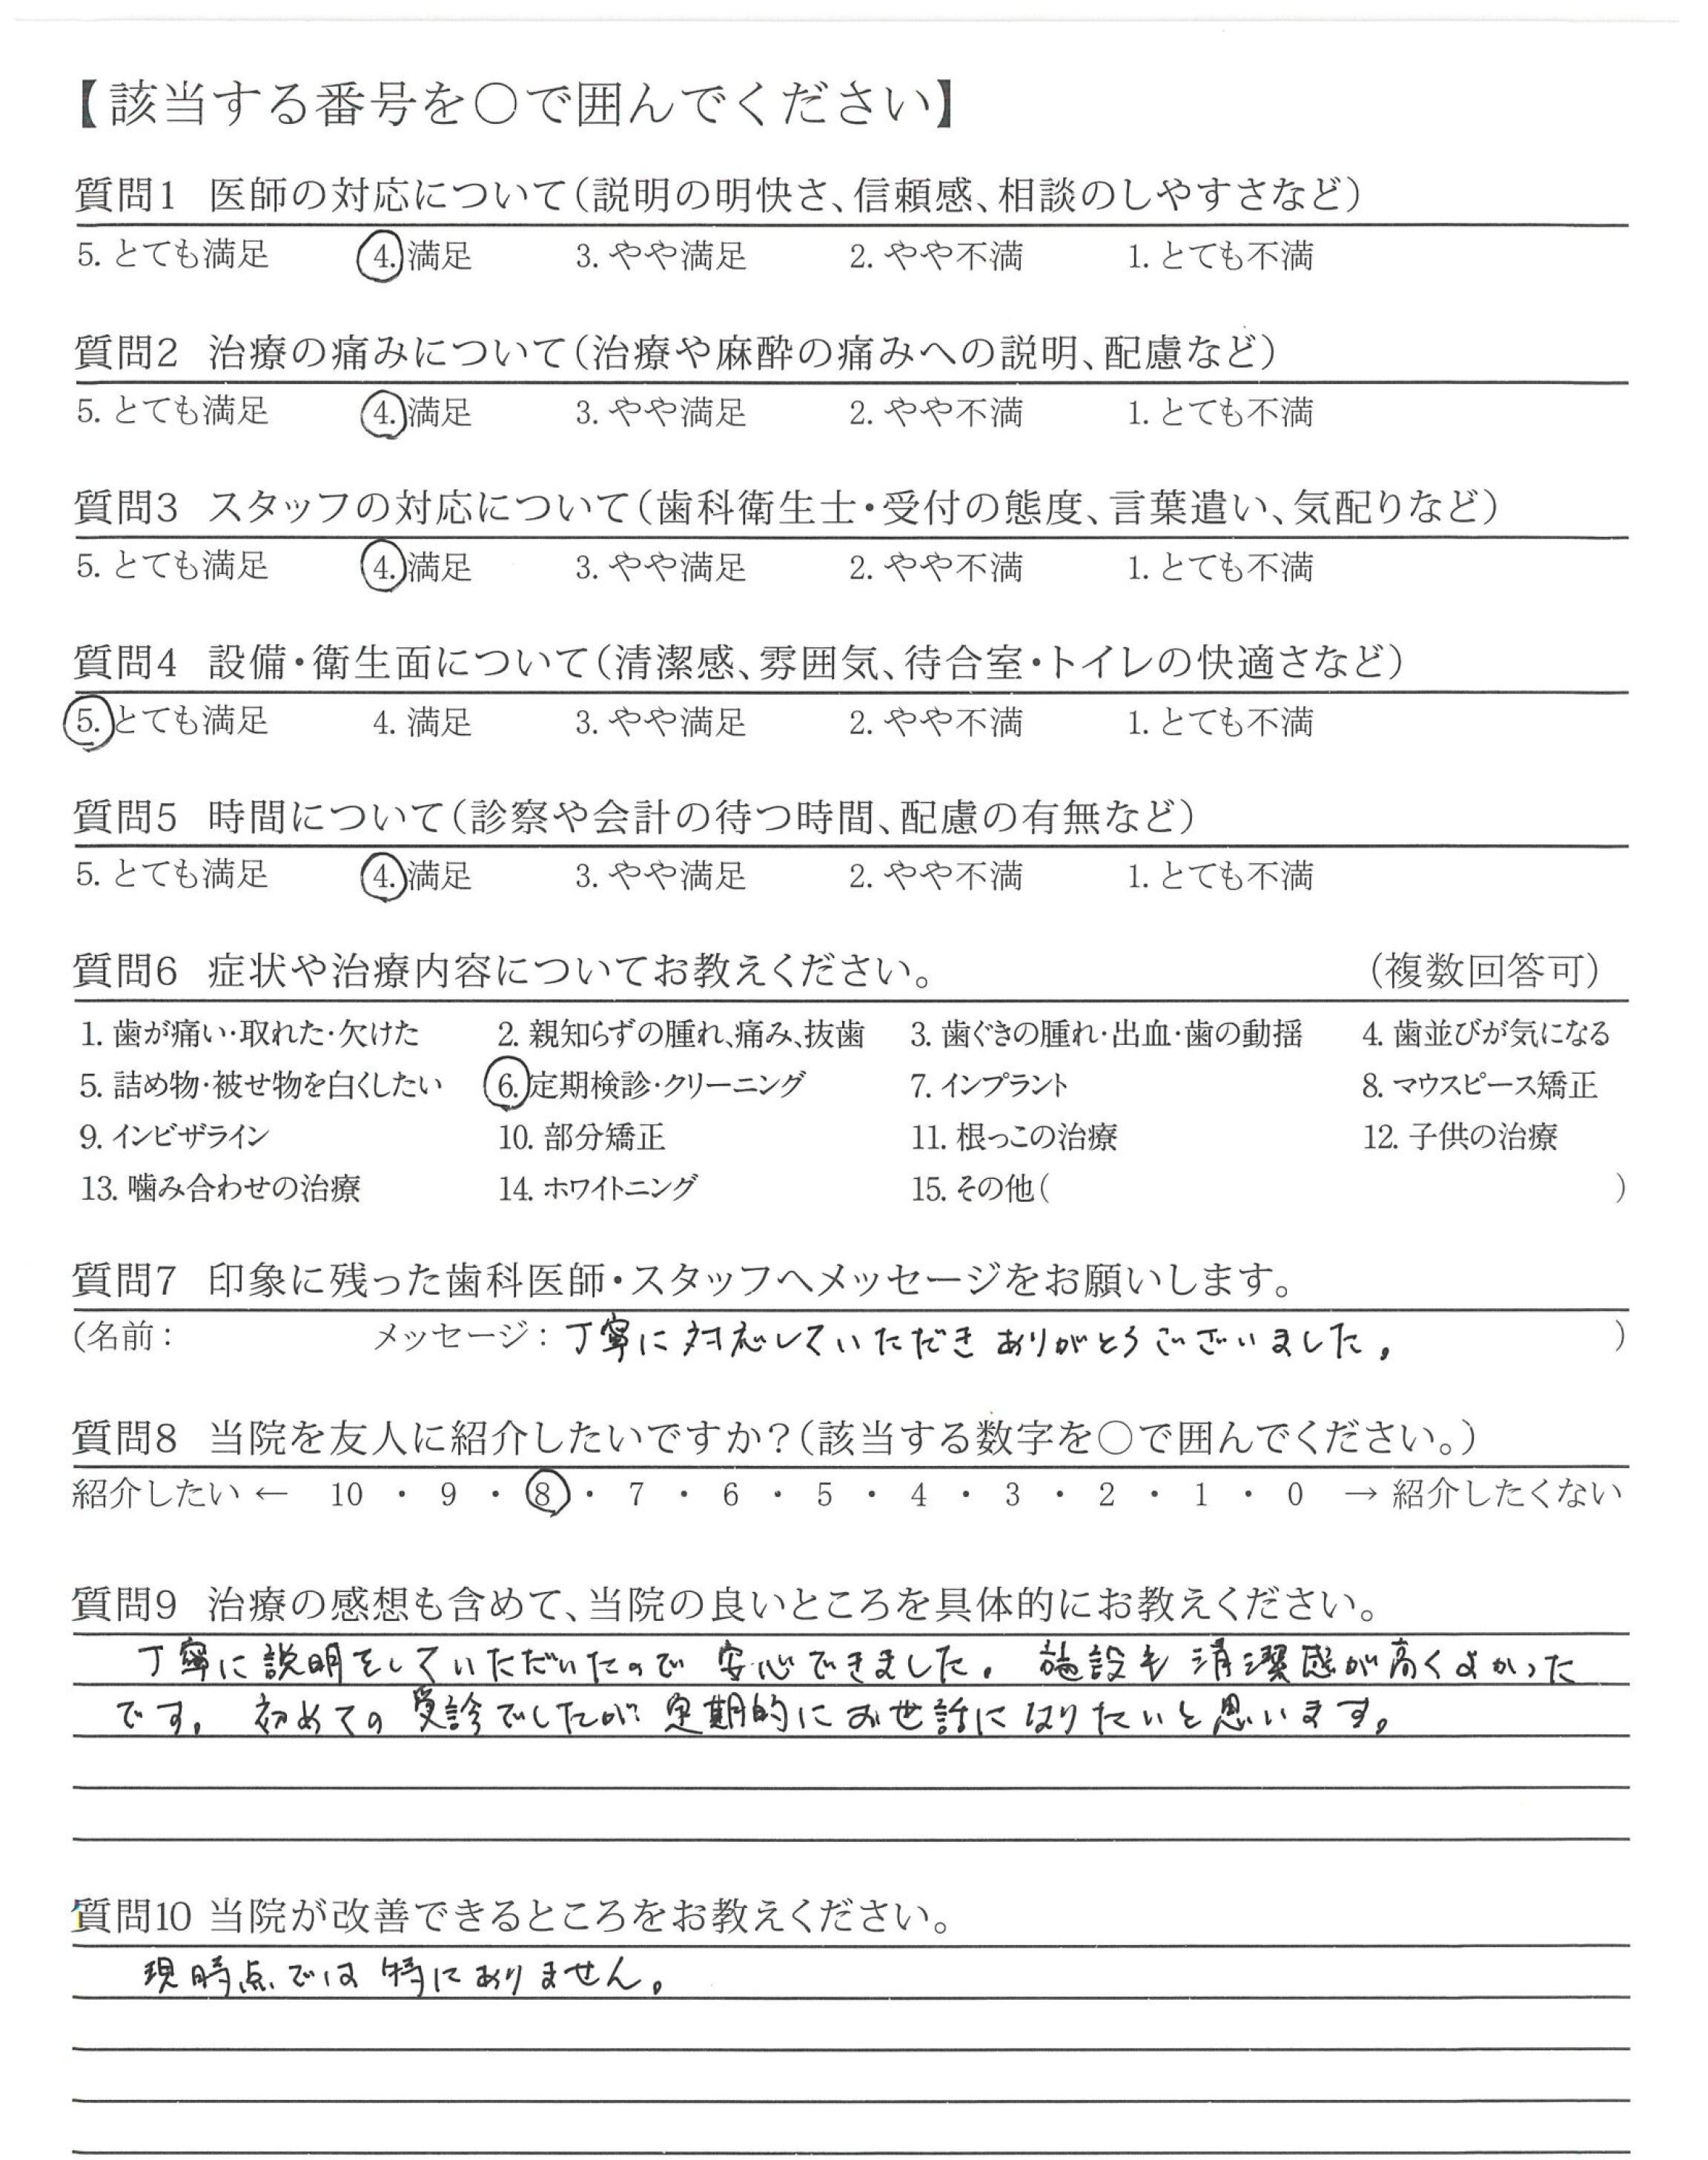 【該当する番号を○で囲んでください】
質問1 医師の対応について(説明の明快さ、信頼感、相談のしやすさなど)
5. とても満足 4. 満足 3. やや満足 2. やや不満 1. とても不満
質問2 治療の痛みについて(治療や麻酔の痛みへの説明、配慮など)
5. とても満足 4. 満足 3. やや満足 2. やや不満 1. とても不満
質問3 スタッフの対応について(歯科衛生士・受付の態度、言葉遣い、気配りなど)
5. とても満足 4. 満足 3. やや満足 2. やや不満 1. とても不満
質問4 設備・衛生面について(清潔感、雰囲気、待合室・トイレの快適さなど)
5. とても満足 4. 満足 3. やや満足 2. やや不満 1. とても不満
質問5 時間について(診察や会計の待つ時間、配慮の有無など)
5. とても満足 4. 満足 3. やや満足 2. やや不満 1. とても不満
質問6 症状や治療内容についてお教えください。 (複数回答可)
1. 歯が痛い・取れた・欠けた 2. 親知らずの腫れ、痛み、抜歯 3. 歯ぐきの腫れ・出血・歯の動揺 4. 歯並びが気になる
5. 詰め物・被せ物を白くしたい 6. 定期検診・クリーニング 7. インプラント 8. マウスピース矯正
9. インビザライン 10. 部分矯正 11. 根っこの治療 12. 子供の治療
13. 噛み合わせの治療 14. ホワイトニング 15. その他( )
質問7 印象に残った歯科医師・スタッフへメッセージをお願いします。
(名前: メッセージ: 丁寧に対応していただきありがとうございました。 )
質問8 当院を友人に紹介したいですか?(該当する数字を○で囲んでください。)
紹介したい ← 10 ・ 9 ・ 8 ・ 7 ・ 6 ・ 5 ・ 4 ・ 3 ・ 2 ・ 1 ・ 0 → 紹介したくない
質問9 治療の感想も含めて、当院の良いところを具体的にお教えください。
丁寧に説明をしていただいたので安心できました。施設も清潔感が高くよかった
です。初めての受診でしたが定期的にお世話になりたいと思います。
質問10 当院が改善できるところをお教えください。
現時点では特にありません。